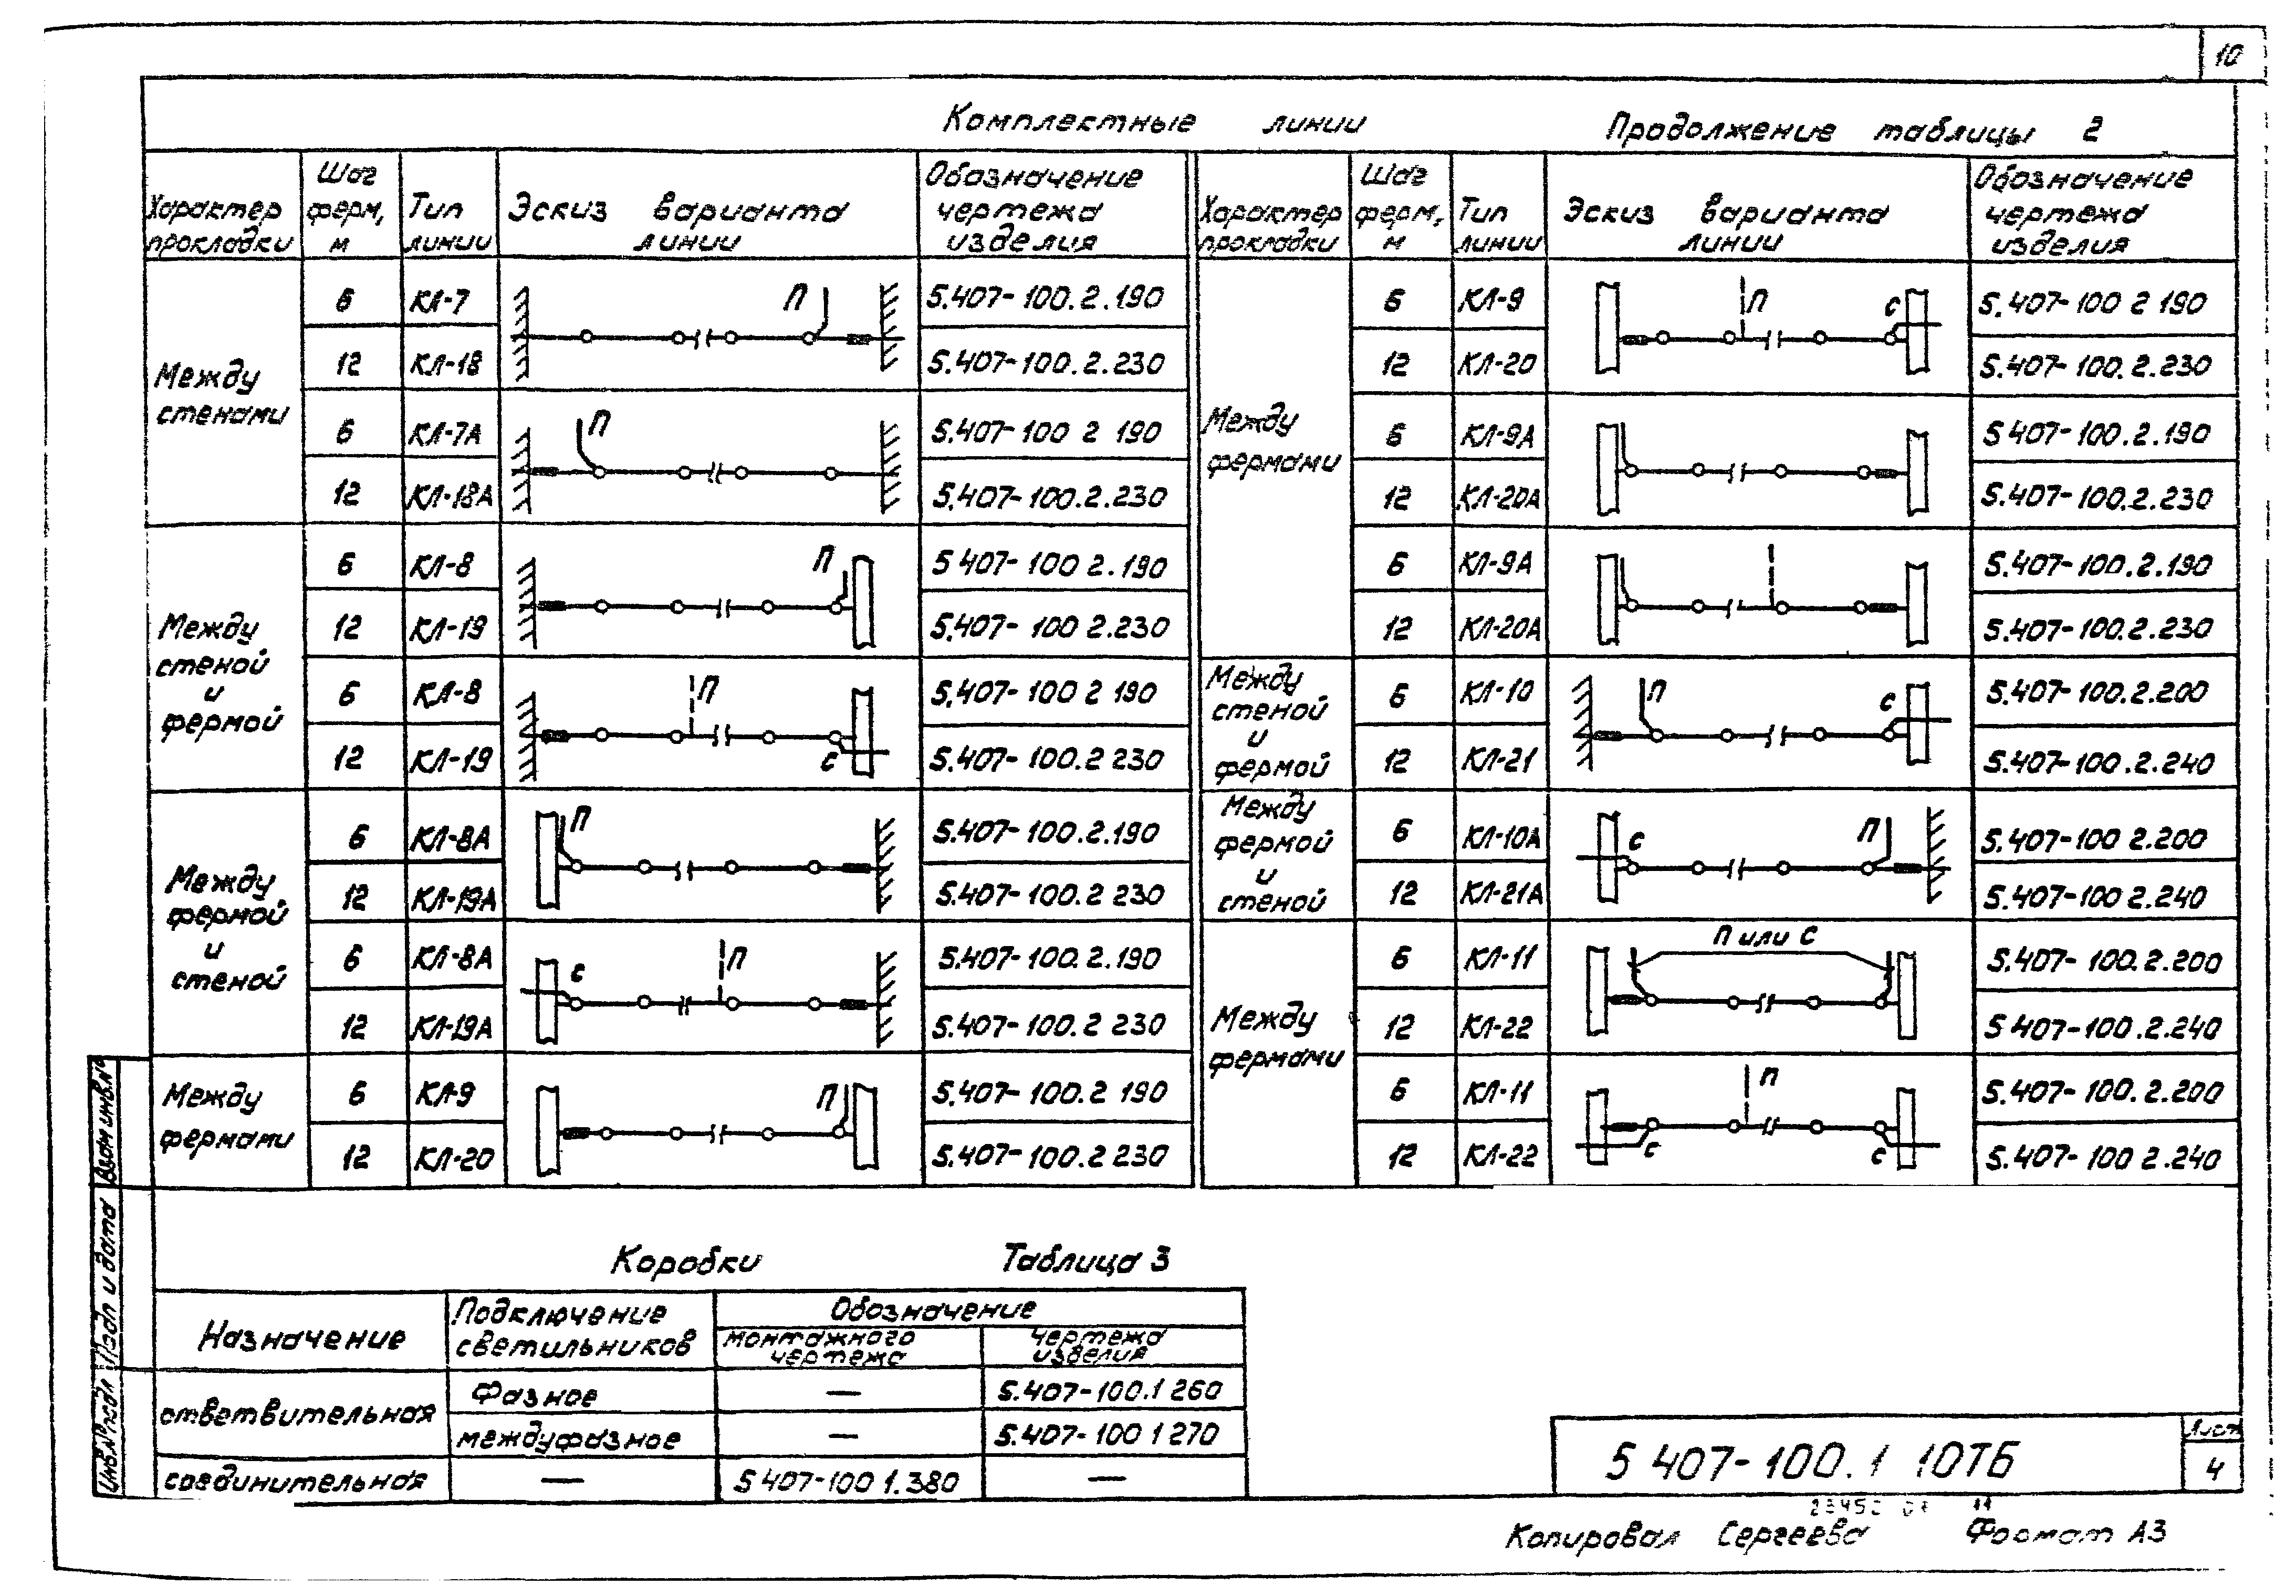 10
Комплектные линии
Продолжение таблицы 2
Характер прокладки
Шаг ферм, м
Тип линии
Эскиз варианта линии
Обозначение чертежа изделия
Между стенами
6 КЛ-7 П 5.407-100.2.190
12 КЛ-18 5.407-100.2.230
6 КЛ-7А П 5.407-100 2 190
12 КЛ-18А 5.407-100.2.230
Между стеной и фермой
6 КЛ-8 П 5 407-100 2.190
12 КЛ-19 5.407-100 2.230
6 КЛ-8 П 5.407-100 2 190
12 КЛ-19 с 5.407-100.2 230
Между фермой и стеной
6 КЛ-8А П 5.407-100.2.190
12 КЛ-19А 5.407-100.2 230
6 КЛ-8А с П 5.407-100.2.190
12 КЛ-19А 5.407-100.2 230
Между фермами
6 КЛ-9 П 5.407-100.2 190
12 КЛ-20 5.407-100.2 230
Характер прокладки
Шаг ферм, м
Тип линии
Эскиз варианта линии
Обозначение чертежа изделия
Между фермами
6 КЛ-9 П с 5.407-100 2 190
12 КЛ-20 5.407-100.2.230
6 КЛ-9А 5 407-100.2.190
12 КЛ-20А 5.407-100.2.230
6 КЛ-9А 5.407-100.2.190
12 КЛ-20А 5.407-100.2.230
Между стеной и фермой
6 КЛ-10 П с 5.407-100.2.200
12 КЛ-21 5.407-100.2.240
Между фермой и стеной
6 КЛ-10А с П 5.407-100 2.200
12 КЛ-21А 5.407-100 2.240
Между фермами
6 КЛ-11 П или С 5.407-100.2.200
12 КЛ-22 5 407-100.2.240
6 КЛ-11 П 5.407-100.2.200
12 КЛ-22 с с 5.407-100 2.240
Коробки Таблица 3
Назначение
Подключение светильников
Обозначение
монтажного чертежа
чертежа изделия
ответвительная
Фазное — 5.407-100.1 260
междуфазное — 5.407-100 1 270
соединительная — 5 407-100 1.380 —
Взам инв.№
Подп и дата
Инв.№подл
5 407-100.1 10ТБ
Лист
4
Копировал Сергеева Формат А3